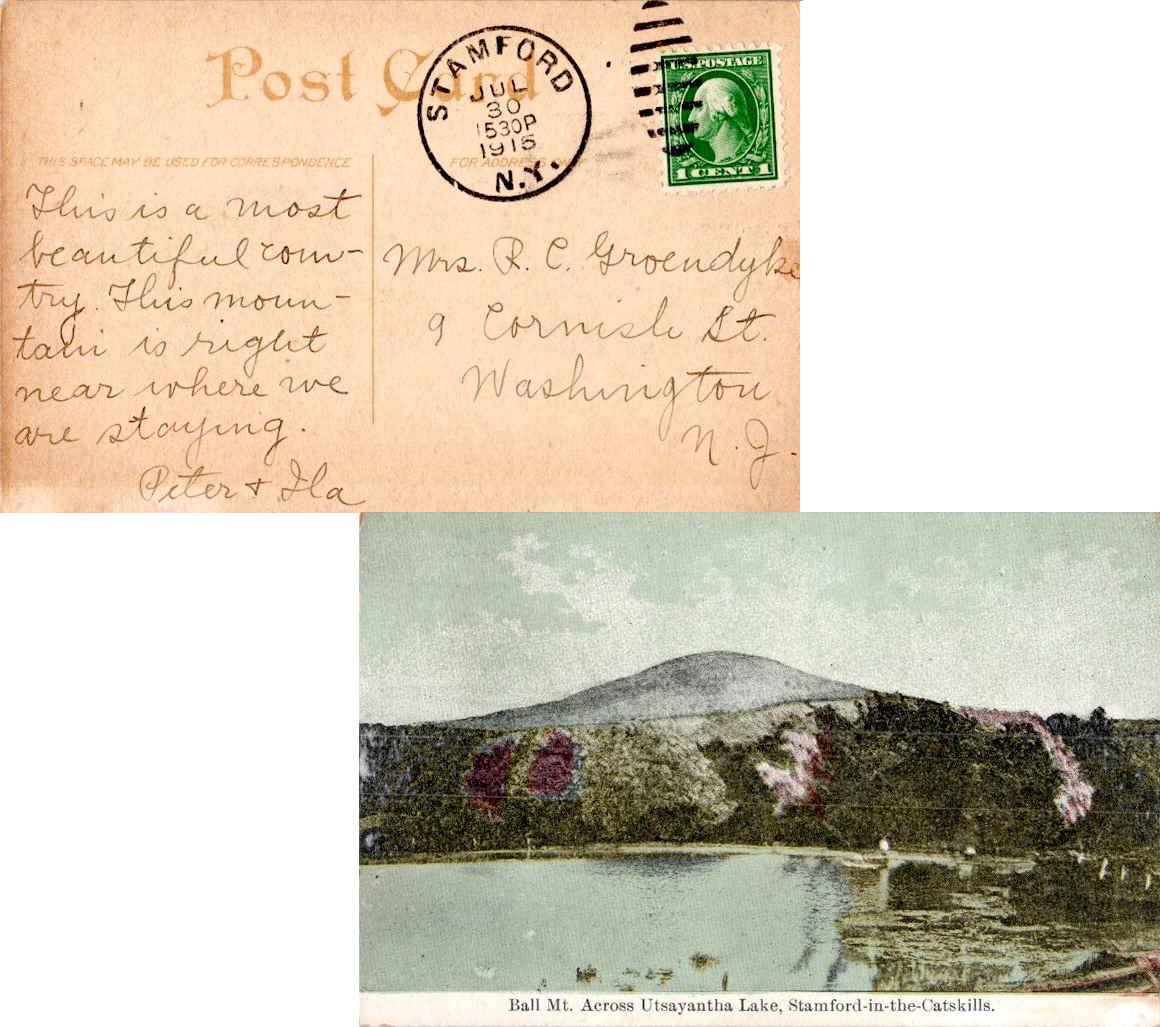 Post Card
STAMFORD
JUL
30
1530P
1915
N.Y.
U.S. POSTAGE
1 CENT 1
THIS SPACE MAY BE USED FOR CORRESPONDENCE
FOR ADDRESS ONLY
This is a most
beautiful coun-
try. This moun-
tain is right
near where we
are staying.
Peter & Ila
Mrs. R. C. Groendyke
9 Cornish St.
Washington
N. J.
Ball Mt. Across Utsayantha Lake, Stamford-in-the-Catskills.